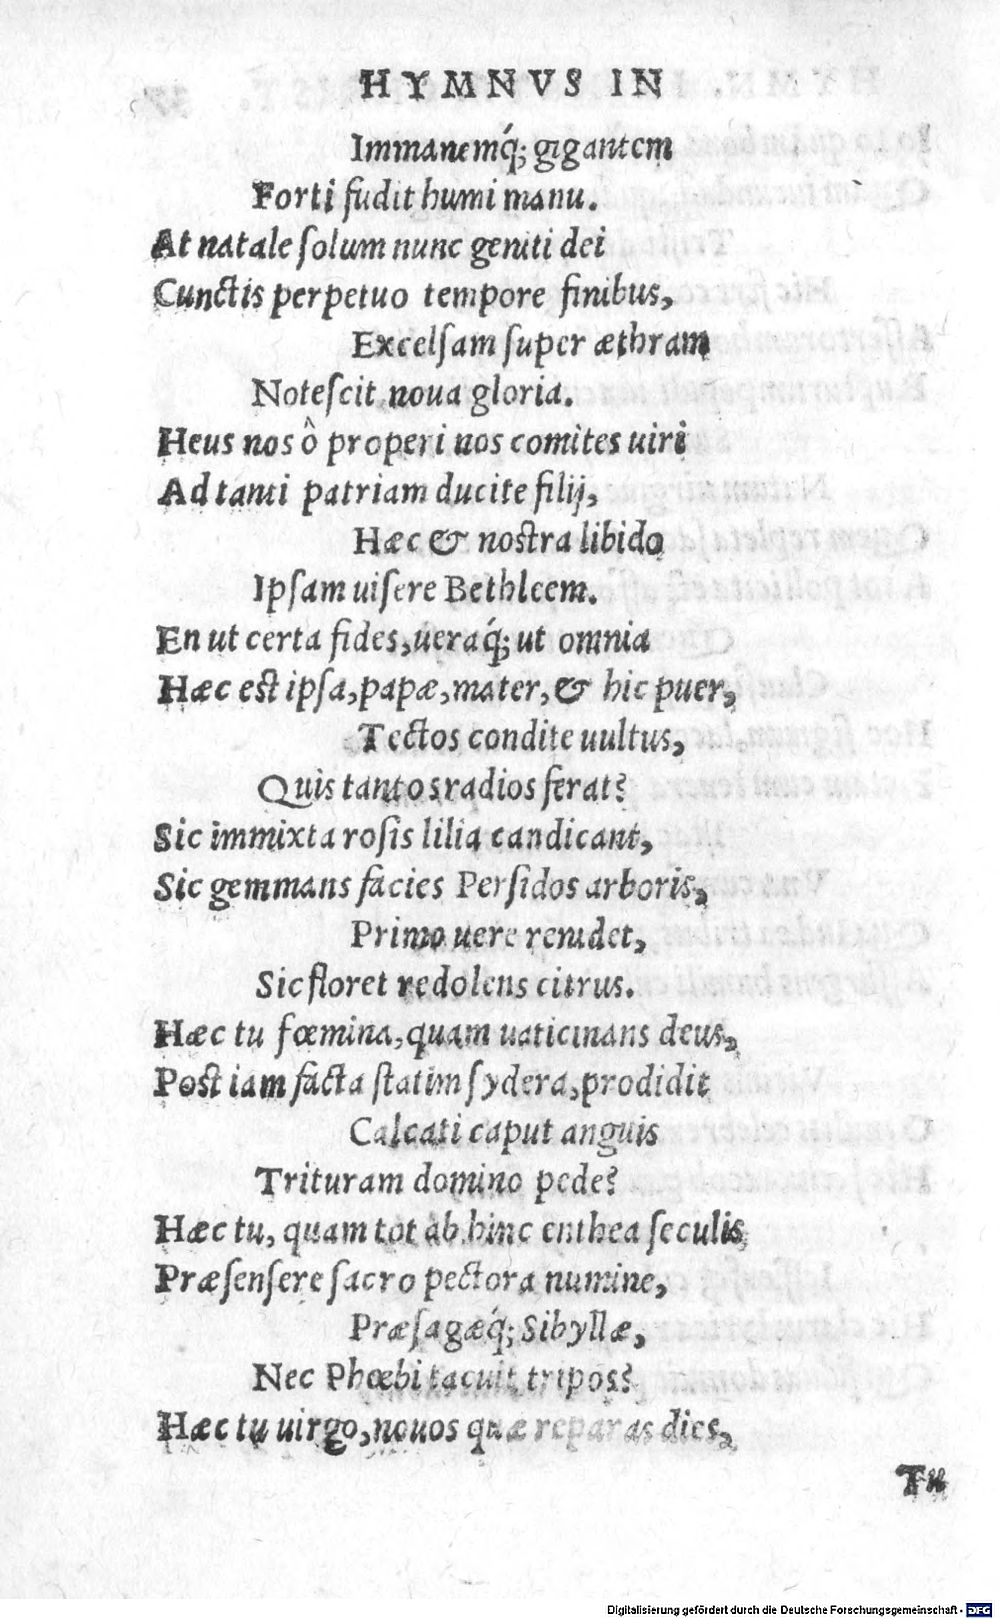 HYMNVS IN
Immanemq́; gigantem
Forti fudit humi manu.
At natale ſolum nunc geniti dei
Cunctis perpetuo tempore finibus,
Excelſam ſuper æthram
Noteſcit noua gloria.
Heus nos ô properi nos comites uiri
Ad tanti patriam ducite filij,
Hæc & nostra libido
Ipſam uiſere Bethleem.
En ut certa fides, ueraq́; ut omnia
Hæc est ipſa, papæ, mater, & hic puer,
Tectos condite uultus,
Quis tantos radios ferat?
Sic immixta roſis lilia candicant,
Sic gemmans facies Perſidos arboris,
Primo uere renidet,
Sic floret redolens citrus.
Hæc tu fœmina, quam uaticinans deus,
Post iam facta ſtatim ſydera, prodidit
Calcati caput anguis
Trituram domino pede?
Hæc tu, quam tot ab hinc enthea ſeculis
Præſenſere ſacro pectora numine,
Præſagæq́; Sibyllæ,
Nec Phœbi tacuit tripos?
Hæc tu uirgo, nouos quæ reparas dies,
Tu
Digitalisierung gefördert durch die Deutsche Forschungsgemeinschaft - DFG